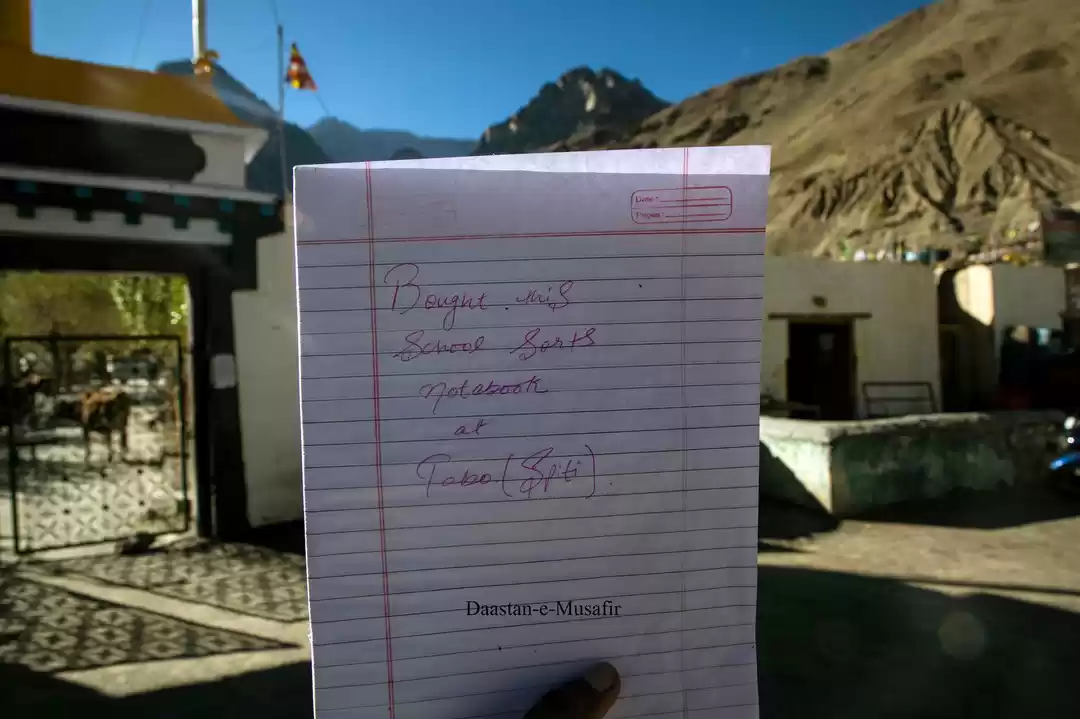 Date :
Pages :
Bought this
School Sorts
notebook
at
Tabo (Spiti).
Daastan-e-Musafir